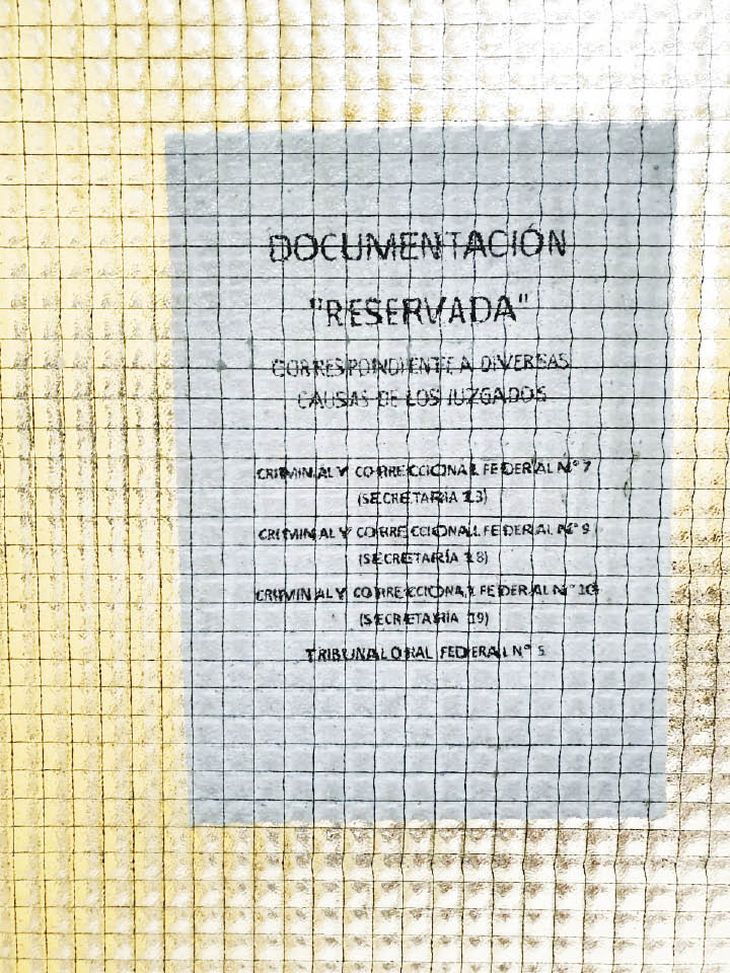 DOCUMENTACIÓN
"RESERVADA"
CORRESPONDIENTE A DIVERSAS
CAUSAS DE LOS JUZGADOS
CRIMINAL Y CORRECCIONAL FEDERAL N° 7
(SECRETARIA 13)
CRIMINAL Y CORRECCIONAL FEDERAL N° 9
(SECRETARÍA 18)
CRIMINAL Y CORRECCIONAL FEDERAL N° 10
(SECRETARIA 19)
TRIBUNAL ORAL FEDERAL N° 5